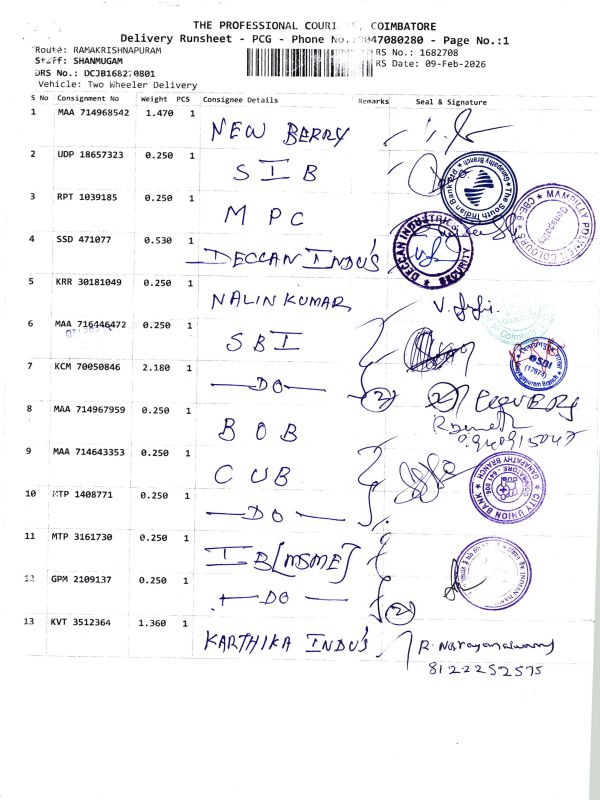 THE PROFESSIONAL COURI , COIMBATORE
Delivery Runsheet - PCG - Phone No.: 047080280 - Page No.:1
Route: RAMAKRISHNAPURAM
RS No.: 1682708
Staff: SHANMUGAM
RS Date: 09-Feb-2026
DRS No.: DCJB168270801
Vehicle: Two Wheeler Delivery
S No Consignment No Weight PCS Consignee Details Remarks Seal & Signature
1 MAA 714968542 1.470 1 NEW BERRY
2 UDP 18657323 0.250 1 SIB
3 RPT 1039185 0.250 1 MPC
4 SSD 471077 0.530 1 DECCAN INDU'S
5 KRR 30181049 0.250 1 NALIN KUMAR
6 MAA 716446472 0.250 1 SBI
7 KCM 70050846 2.180 1 —DO— 2
8 MAA 714967959 0.250 1 BOB
9 MAA 714643353 0.250 1 CUB
10 MTP 1408771 0.250 1 —DO—
11 MTP 3161730 0.250 1 IB[MSME]
12 GPM 2109137 0.250 1 —DO— 2
13 KVT 3512364 1.360 1 KARTHIKA INDU'S R. Narayanaswamy
8122252575
The South Indian Bank
Ganapathy Branch
DECCAN INDUSTRIAL SECURITY
MAMPILLY POLYMER COLOURS
CBE-6
SBI
CITY UNION BANK
GANAPATHY BRANCH